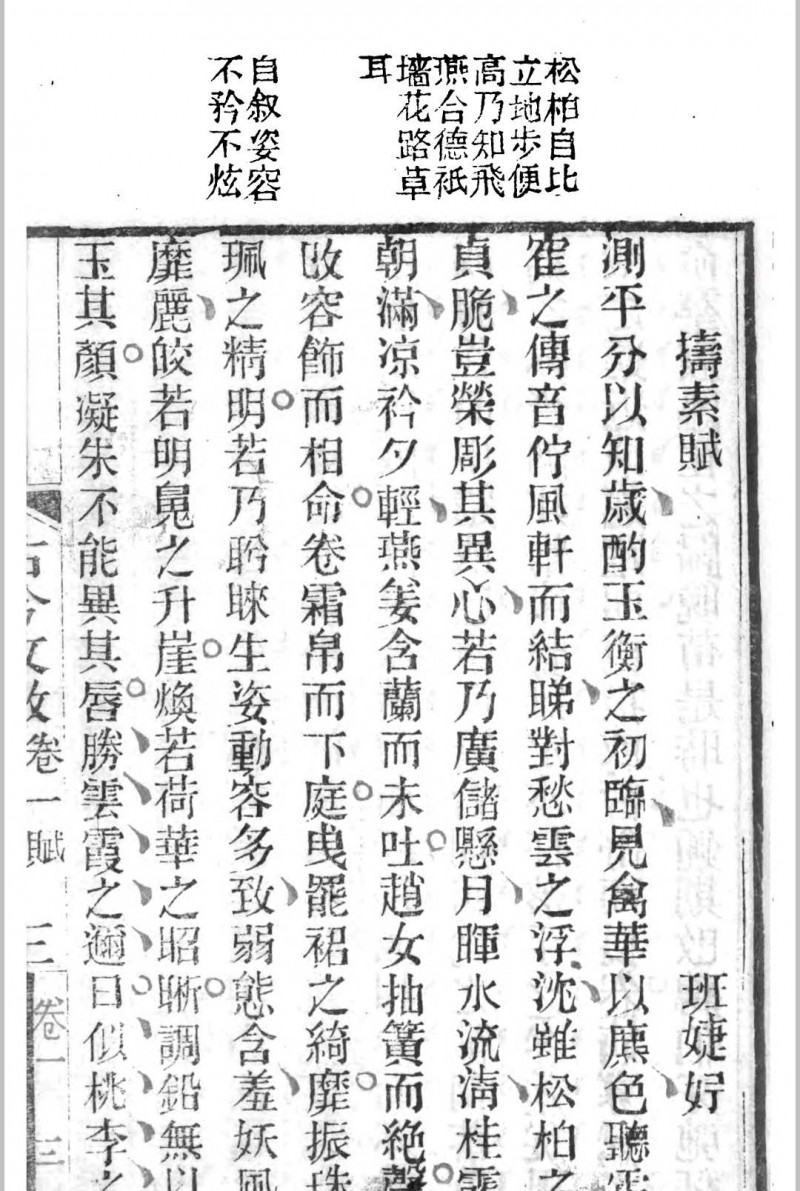 松柏自比
立地步便
高乃知飛
燕合德祇
墻花路草
耳
自叙姿容
不矜不炫
擣素賦 班婕妤
測平分以知歲酌玉衡之初臨見禽華以麃色聽霜
隺之傳音佇風軒而結睇對愁雲之浮沈雖松柏之
貞脆豈榮彫其異心若乃廣儲懸月暉水流淸桂露
朝滿凉衿夕輕燕姜含蘭而未吐趙女抽簧而絶聲
攺容飾而相命卷霜帛而下庭曳罷裙之綺靡振珠
珮之精明若乃盻睞生姿動容多致弱態含羞妖風
靡麗皎若明䰟之升崖煥若荷華之昭晰調鉛無以
玉其顏凝朱不能異其唇勝雲霞之邇日似桃李之
古今文致 卷一 賦 三
卷一 三